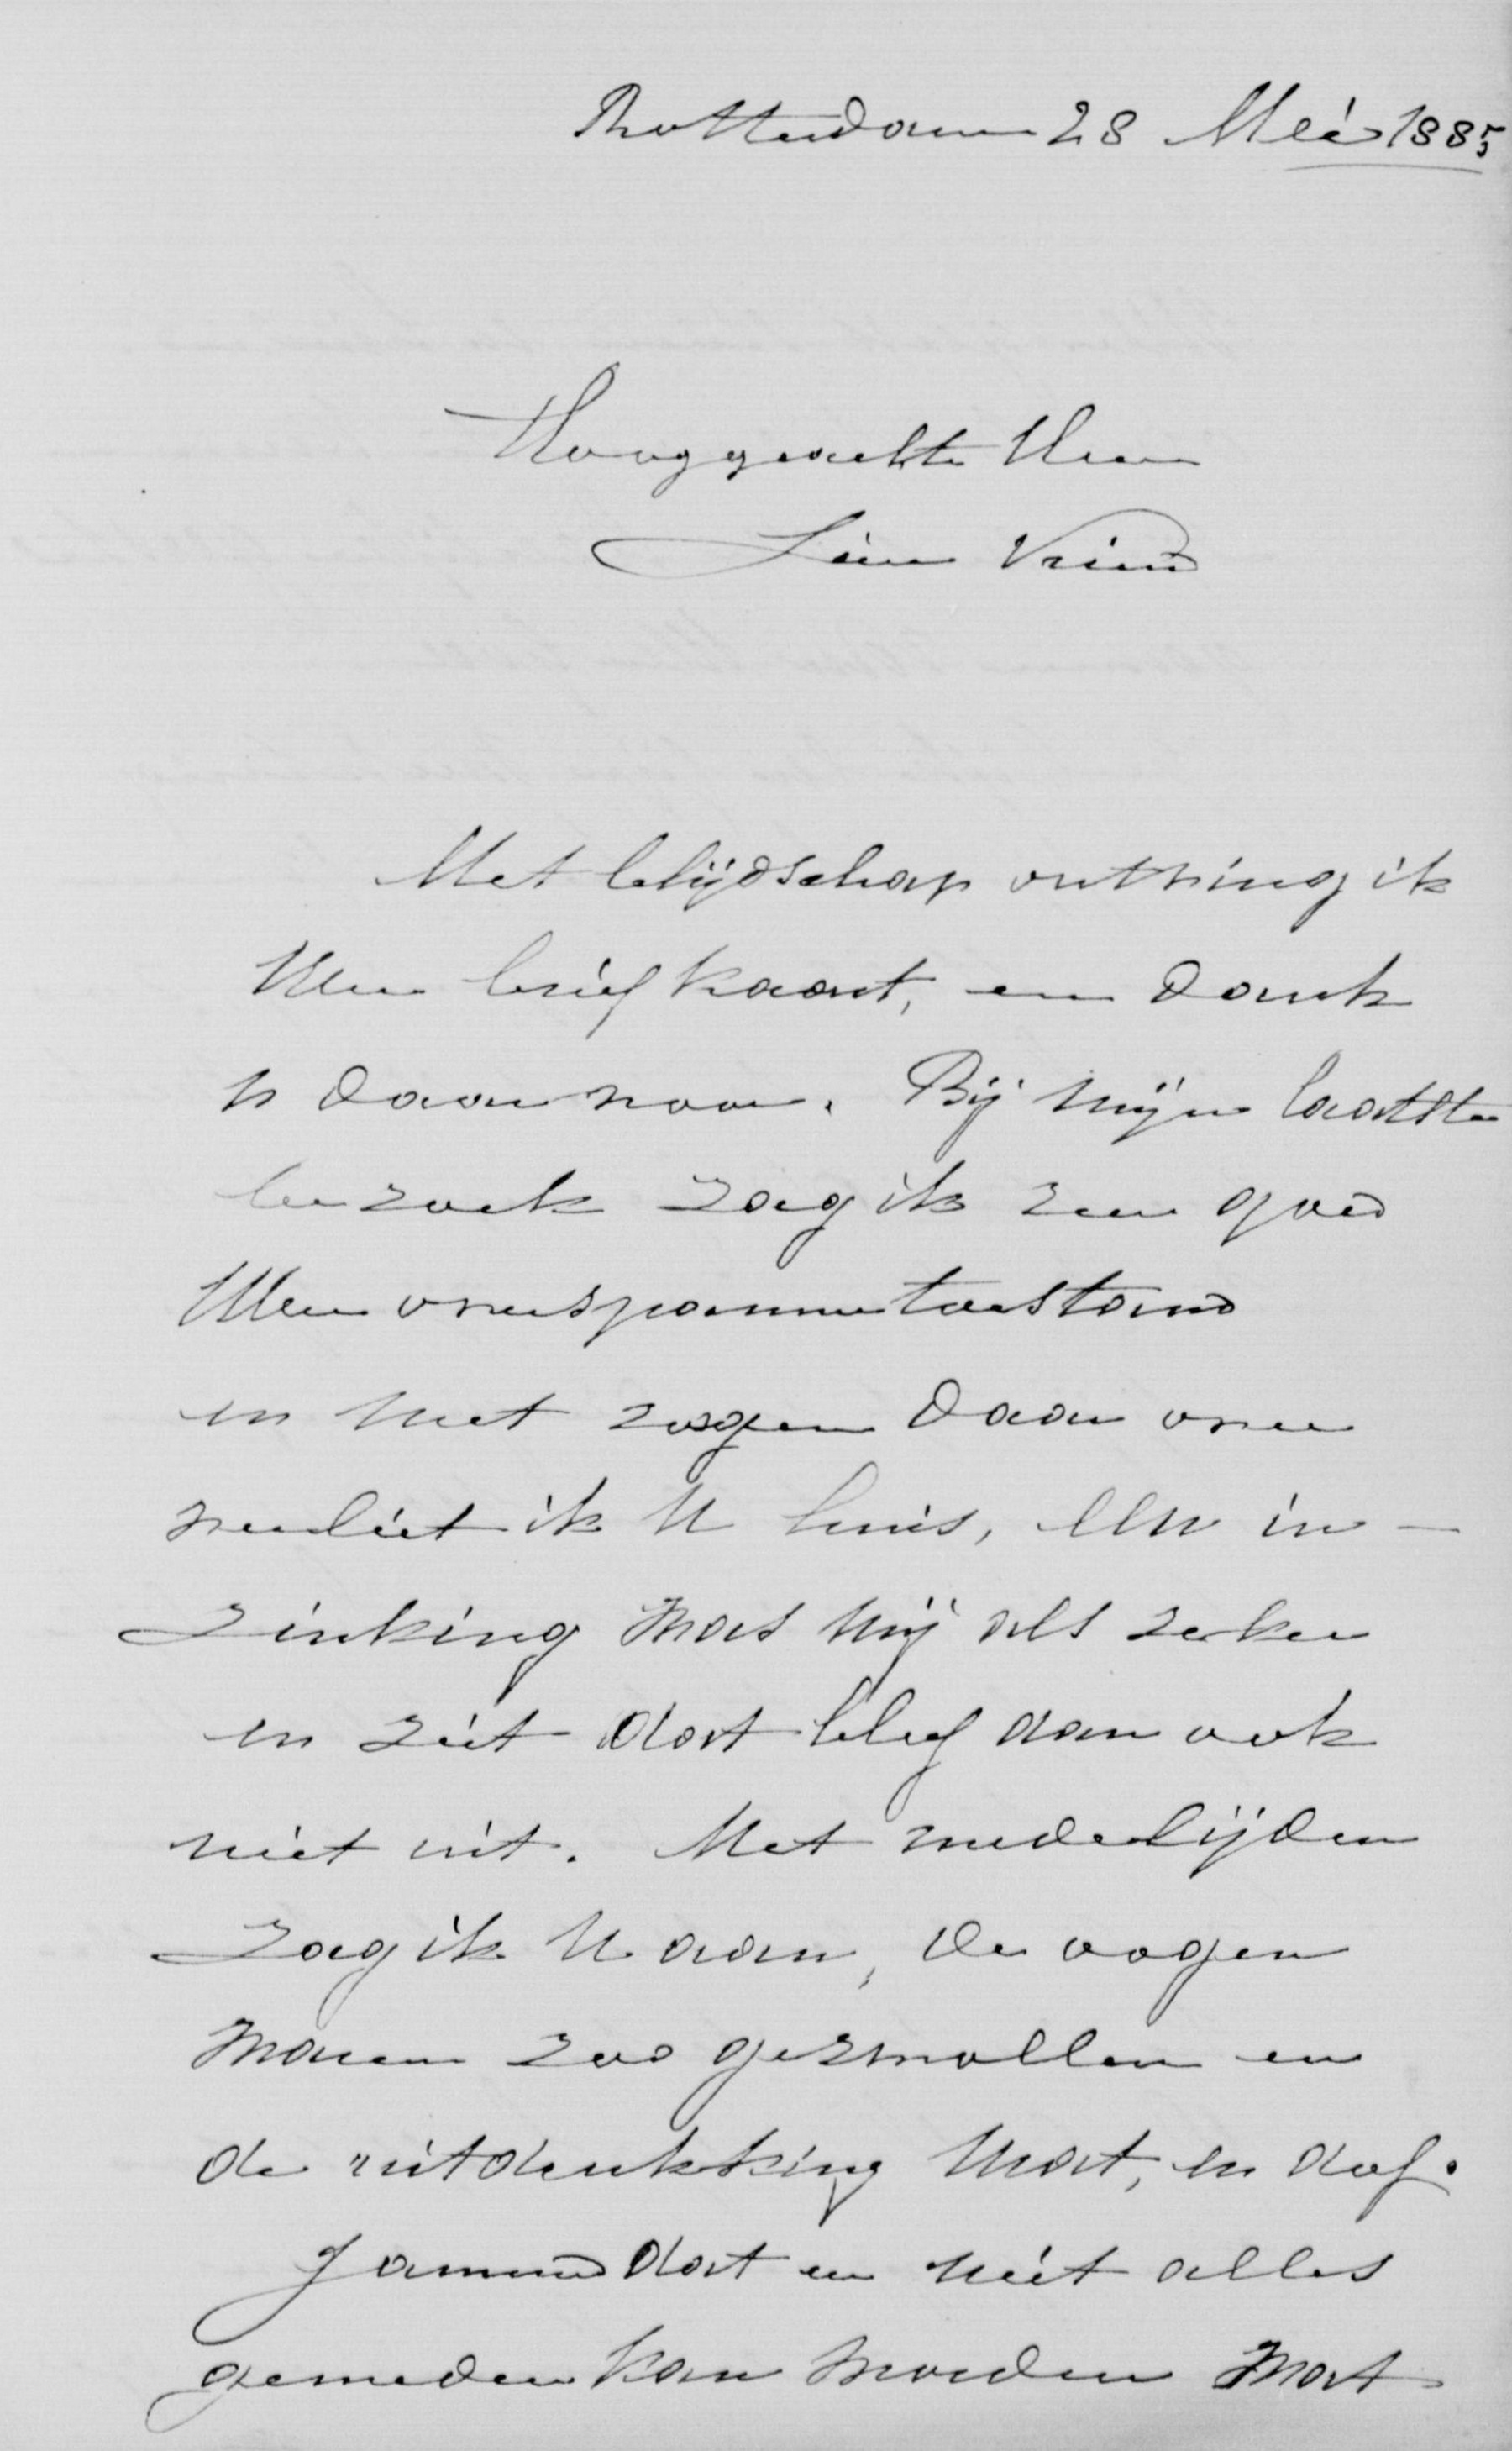 Rotterdam 28 Mei 1885
Hooggeachte Heer
Lieve Vriend
Met blijdschap ontving ik
Uwe briefkaart, en dank
U daarvoor. Bij mijn laatste
bezoek zag ik zeer goed
Uwe overspannen toestand
en met zorgen daar over
verliet ik U huis, Uw in-
zinking was mij als zeker
en ziet dat bleef dan ook
niet uit. Met medelijden
zag ik U aan, de oogen
waren zoo gezwollen en
de uitdrukking mat, en dof.
Jammer dat er niet alles
gemeden kan worden wat